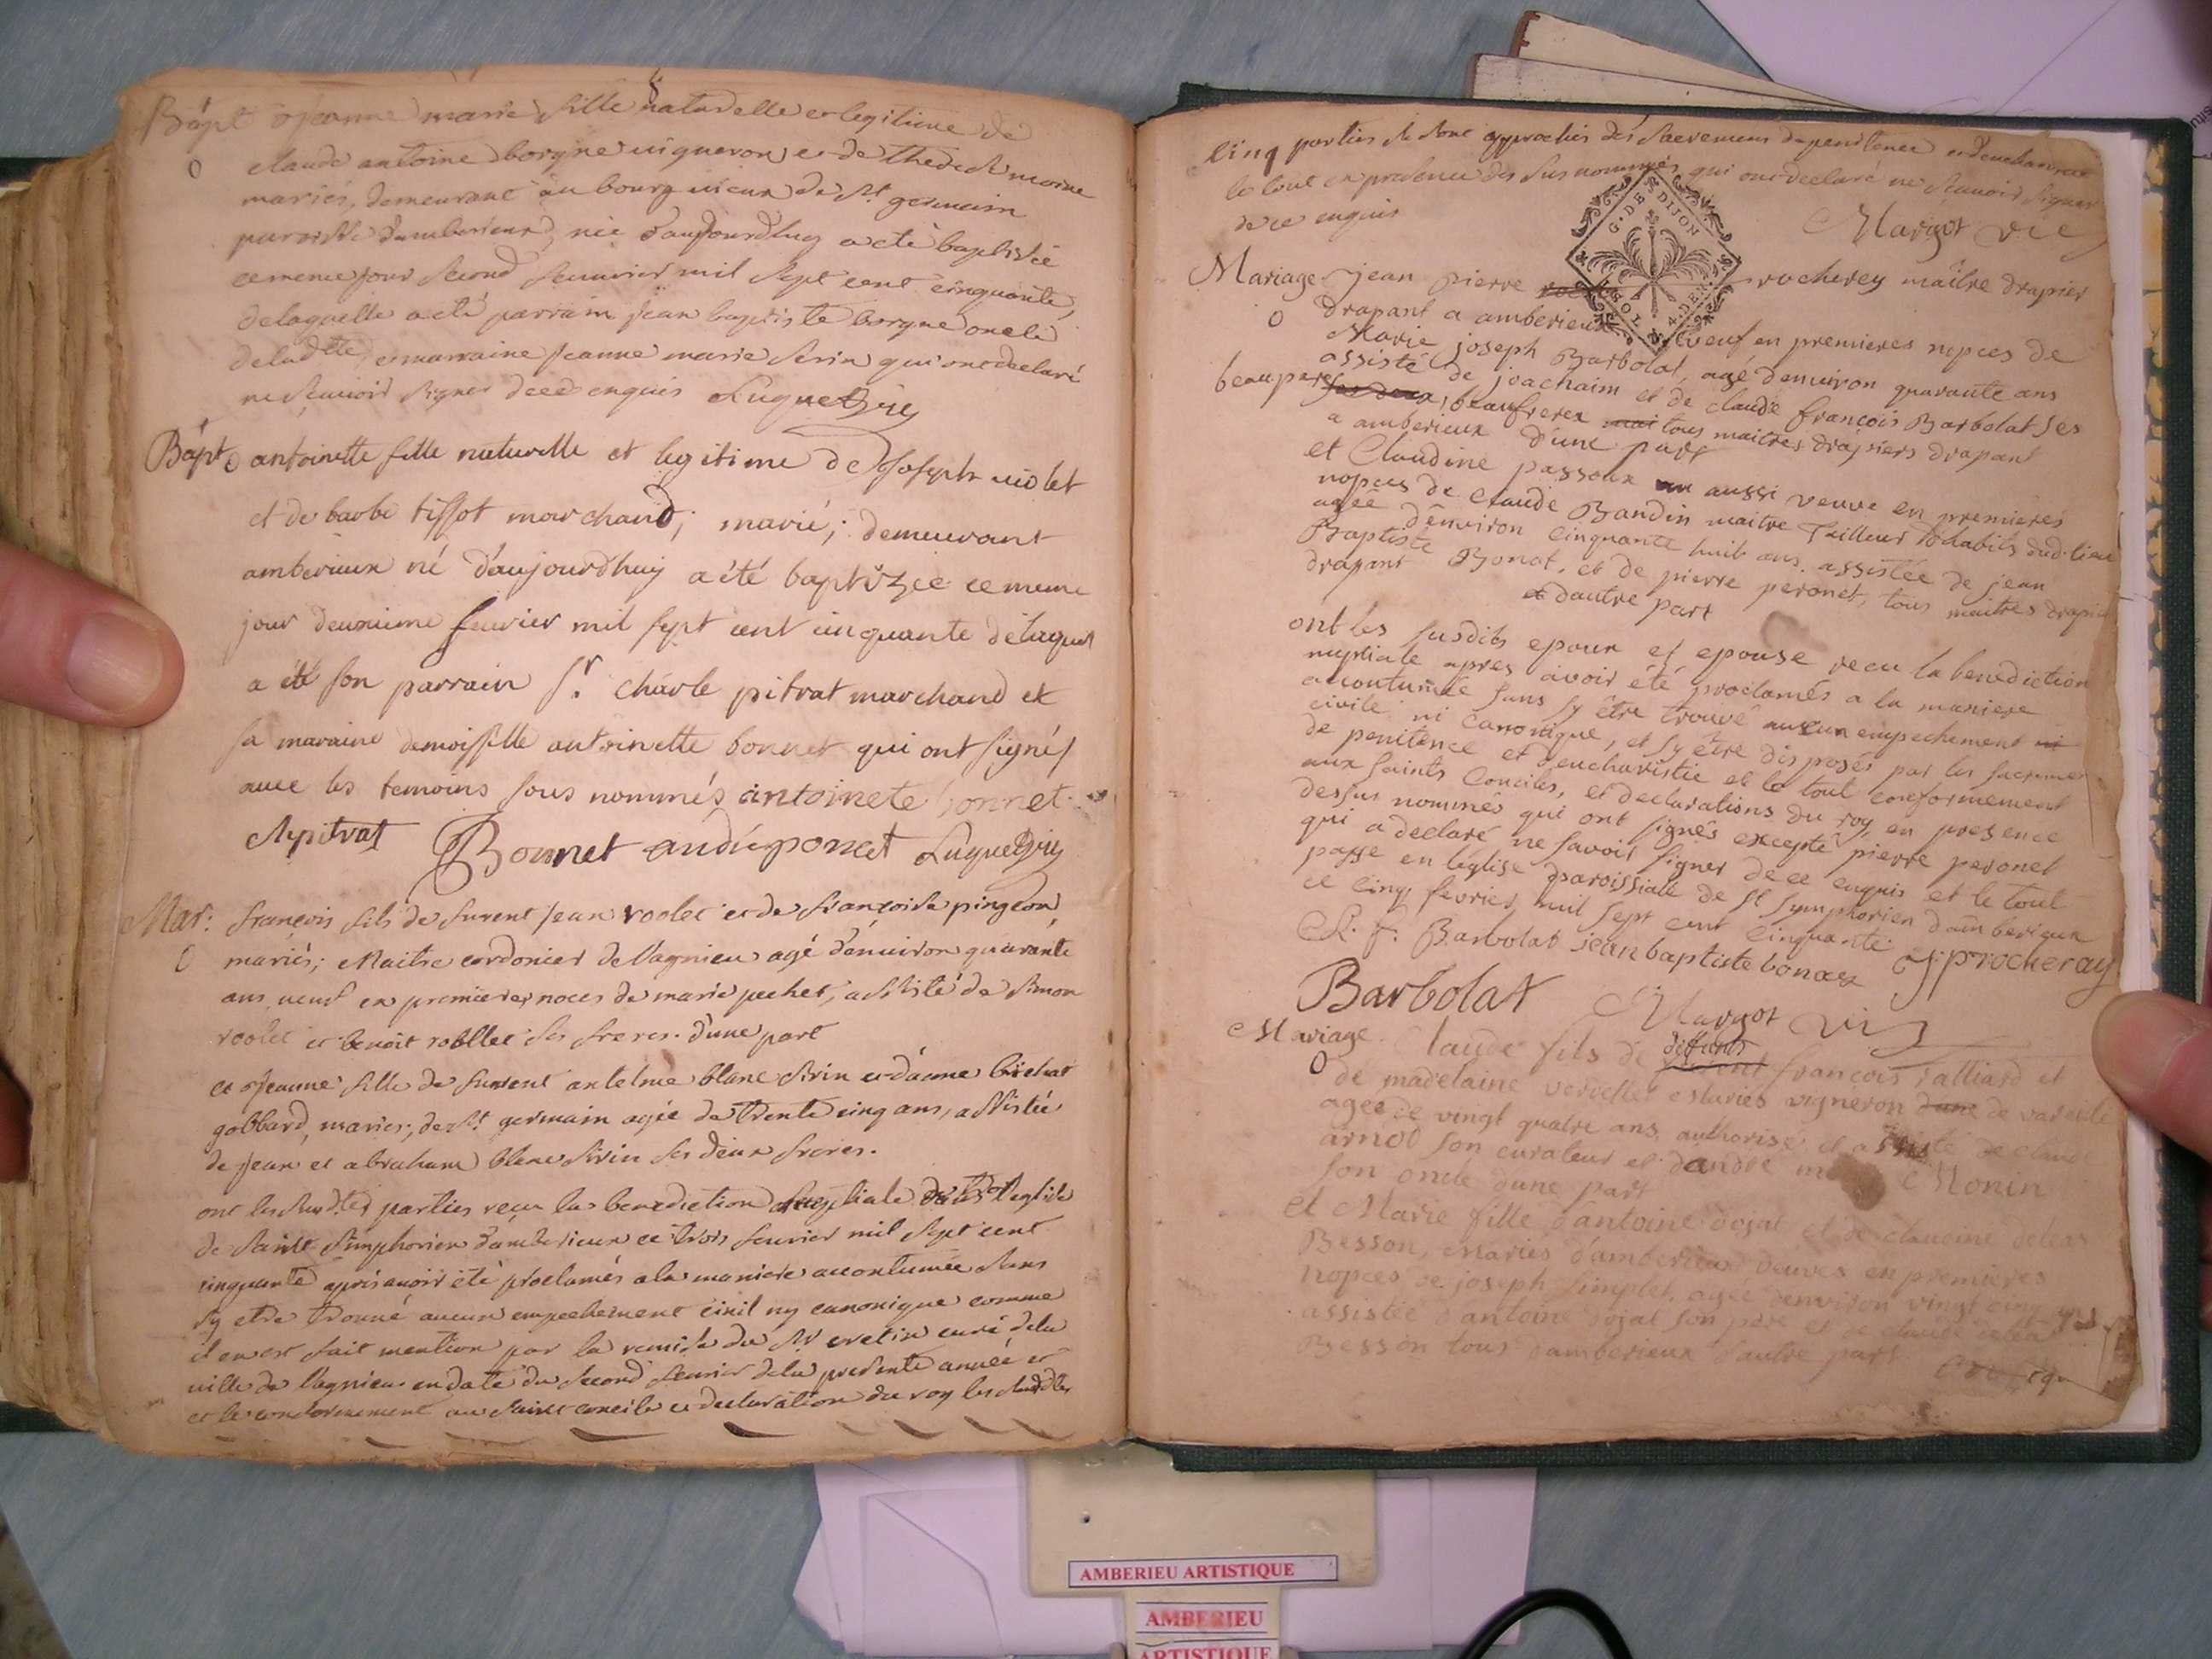 Bapt Jeanne marie fille naturelle et legitime de
claude antoine borgne vigneron et de moine
mariés, demeurant au bourg vieux de St. germain
paroisse d'amberieux, née d'aujourd'huy a eté baptisée
ce meme jour second feuvrier mil sept cent cinquante,
de laquelle a eté parrain jean baptiste borgne oncle
de lad.te, et marraine jeanne marie serin qui ont declaré
ne sçauoir signer de ce enquis Luguet
Bapt antoinette fille naturelle et legitime de Joseph uiolet
et de barbe tissot marchand; marié; demeurant
amberieux né d'aujourd'huy a été baptizée ce meme
jour deuxieme feurier mil sept cent cinquante delaquel
a été son parrain Sr. charle pitrat marchand et
sa maraine demoisselle antoinette bonnet qui ont signés
auec les temoins sous nommés antoinete bonnet
pitrat Bonnet andré poncet Luguet
Mar: françois fils de furent jean roolet et de françoise pingeon,
mariés; Maitre cordonier de Lagnieu agé d'enuiron quarante
ans, ueuf en premieres noces de marie pechet, assisté de Simon
roolet et benoit robllet ses freres. d'une part
et Jeanne fille de furent antelme blanc sirin et d'anne bichat
gobbard, mariés, de St. germain agée de trente cinq ans, assistée
de jean et abraham blanc sirin ses deux freres.
ont les susd.tes parties reçu la benediction nuptiale l'eglise
de saint simphorien d'amberieux ce trois feurier mil sept cent
cinquante apres auoir été proclamés a la maniere accoutumée sans
s'y etre trouué aucun empechement ciuil ny canonique comme
il en est fait mention par la remise du Sr cretin curé de la
uille de Lagnieu en date du second feurier de la presente année et
et le conformement au saint concile et declaration du roy les susdites
cinq parties se sont approchés des sacremens de penitence et d'eucharistie
le tout en presence des sus nommés qui ont declaré ne sçauoir signer
de ce enquis
Margot vic
G. DE DIJON
Mariage jean pierre rocherey maître drapier
drapant a amberieux veuf en premieres nopces de
Marie joseph Barbolat, agé d'enuiron quarante ans
assisté de joachaim et de claude françois Barbolat ses
beaupere, beaufreres tous maitres drapiers drapant
a amberieux d'une part
et Claudine passoux aussi veuve en premieres
nopces de claude Bandin maitre Tailleur d'habits dud. lieu
agée d'enuiron cinquante huit ans. assistée de jean
Baptiste Bonat, et de pierre peronet, tous maitres drapier
drapant d'autre part
ont les susdits epoux et epouse recu la benediction
nuptiale apres avoir été proclamés a la maniere
acoutumée sans s'y être trouvé aucun empechement
civile ni canonique, et s'y être disposés par les sacremens
de penitence et d'eucharistie et le tout conformement
aux saints Conciles, et declarations du roy en presence
dessus nommés qui ont signés excepté pierre peronet
qui a declaré ne savoir signer de ce enquis et le tout
passe en l'eglise paroissialle de St symphorien d'amberieux
ce cinq fevrier mil sept cent cinquante
C. f. Barbolat jean baptiste bonax j p rocheray
Barbolat Margot vic
Mariage. Claude fils de deffunts françois ralliard et
de madelaine vervellet mariés vigneron de vareille
agée de vingt quatre ans, authorisé et assisté de claude
arnod son curateur et d'andré Monin
son oncle d'une part
et Marie fille d'antoine dojat et de claudine deléaz
Besson, mariés d'amberieux, veuves en premieres
nopces de joseph simplet, agée d'enuiron vingt cinq ans
assistée d'antoine dojat son pere et de claude deléaz
Besson tous d'amberieux d'autre part
AMBERIEU ARTISTIQUE
AMBERIEU
ARTISTIQUE